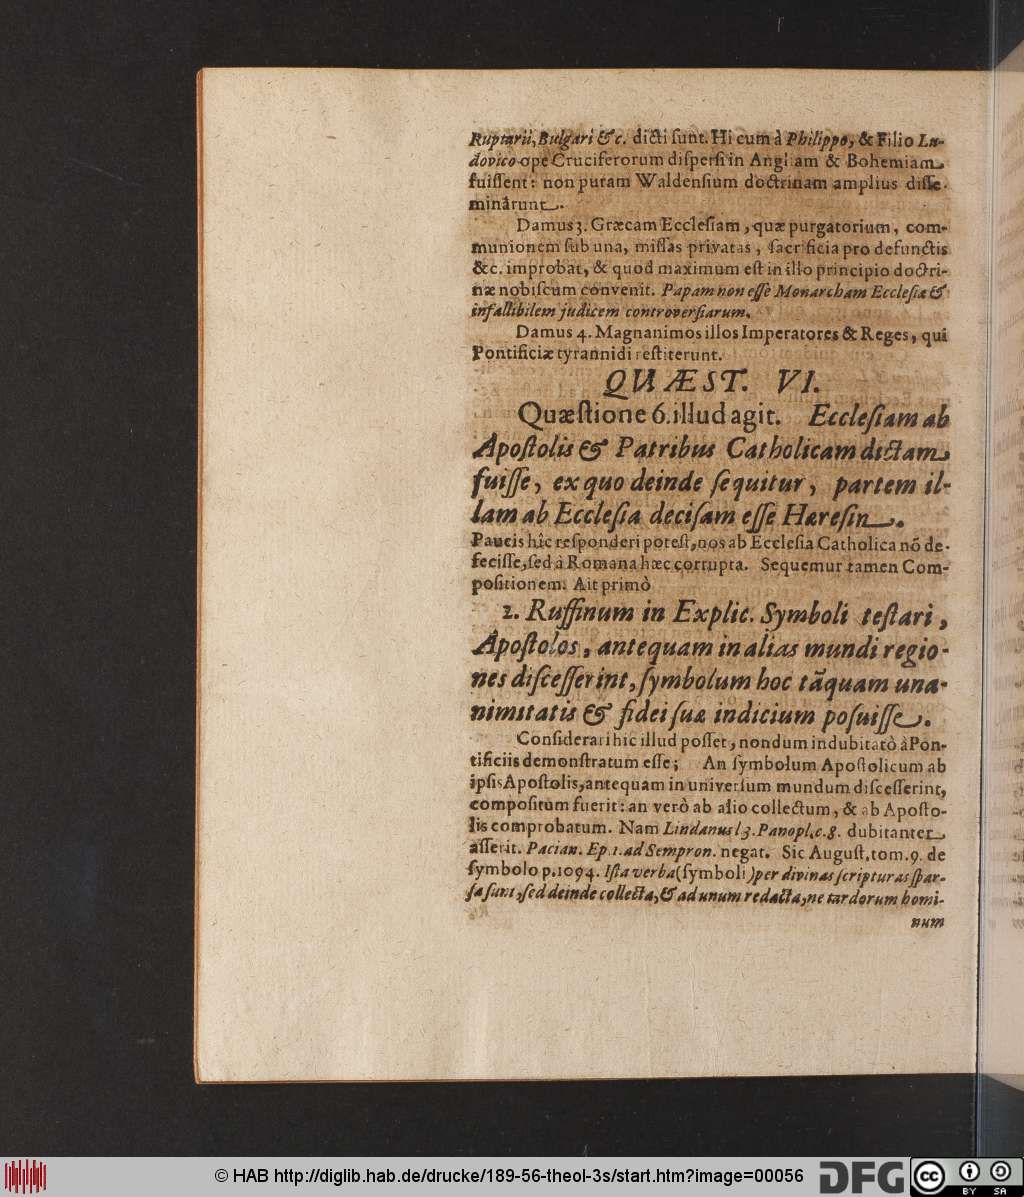 Ruptarii, Bulgari &c. dicti ſunt. Hi cum à Philippo, & Filio Lu-
dovico ope Cruciferorum diſperſi in Angliam & Bohemiam
fuiſſent: non puram Waldenſium doctrinam amplius diſſe-
minârunt.
Damus 3. Græcam Eccleſiam, quæ purgatorium, com-
munionem ſub una, miſſas privatas, ſacrificia pro defunctis
&c. improbat, & quod maximum eſt in illo principio doctri-
næ nobiſcum convenit. Papam non eſſe Monarcham Eccleſiæ &
infallibilem judicem controverſiarum.
Damus 4. Magnanimos illos Imperatores & Reges, qui
Pontificiæ tyrannidi reſtiterunt.
QUÆST. VI.
Quæſtione 6. illud agit. Eccleſiam ab
Apoſtolis & Patribus Catholicam dictam
fuiſſe, ex quo deinde ſequitur, partem il-
lam ab Eccleſia deciſam eſſe Hæreſin.
Paucis hîc reſponderi poteſt, nos ab Eccleſia Catholica nō de-
feciſſe, ſed à Romana hæc corrupta. Sequemur tamen Com-
poſitionem. Ait primò
2. Ruffinum in Explic. Symboli teſtari,
Apoſtolos, antequam in alias mundi regio-
nes diſceſſerint, ſymbolum hoc tāquam una-
nimitatis & fidei ſuæ indicium poſuiſſe.
Conſiderari hic illud poſſet, nondum indubitatò à Pon-
tificiis demonſtratum eſſe; An ſymbolum Apoſtolicum ab
ipſis Apoſtolis, antequam in univerſum mundum diſceſſerint,
compoſitum fuerit: an verò ab alio collectum, & ab Apoſto-
lis comprobatum. Nam Lindanus l 3. Panopl. c. 8. dubitanter
aſſerit. Pacian. Ep. 1. ad Sempron. negat. Sic Auguſt, tom. 9. de
ſymbolo p. 1094. Iſta verba (ſymboli) per divinas ſcripturas ſpar-
ſa ſunt, ſed deinde collecta, & ad unum redacta, ne tardorum homi-
num
© HAB http://diglib.hab.de/drucke/189-56-theol-3s/start.htm?image=00056
DFG
cc
BY SA